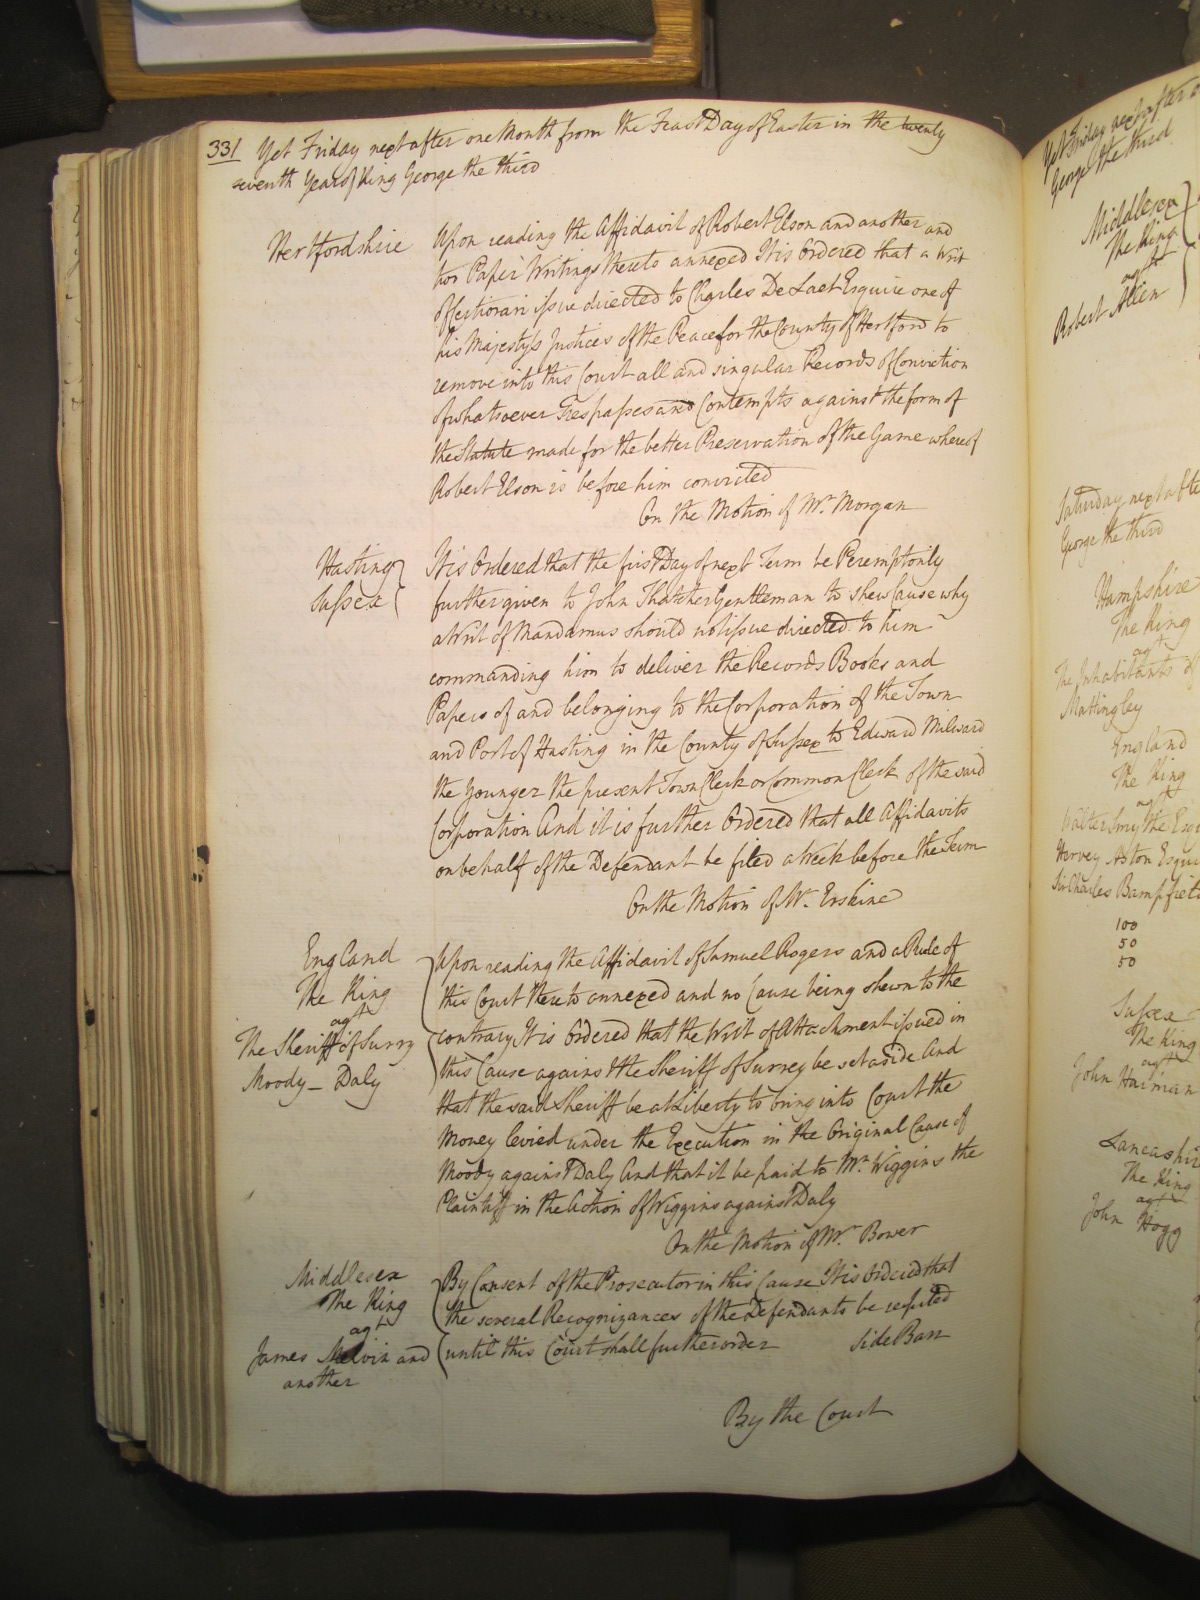 331 Yet Friday next after one Month from the Feast Day of Easter in the twenty
seventh Year of King George the third
Hertfordshire
Upon reading the Affidavit of Robert Elson and another and
two Paper Writings thereto annexed It is Ordered that a Writ
of Certiorari issue directed to Charles De Laet Esquire one of
his Majestys Justices of the Peace for the County of Hertford to
remove into this Court all and singular Records of Conviction
of whatsoever Trespasses and Contempts against the form of
the Statute made for the better Preservation of the Game whereof
Robert Elson is before him convicted
On the Motion of Mr. Morgan
Hasting
Sussex
It is Ordered that the first Day of next Term be Peremptorily
further given to John Thatcher Gentleman to shew Cause why
a Writ of Mandamus should not issue directed to him
commanding him to deliver the Records Books and
Papers of and belonging to the Corporation of the Town
and Port of Hasting in the County of Sussex to Edward Milward
the Younger the present Town Clerk or Common Clerk of the said
Corporation And it is further Ordered that all Affidavits
on behalf of the Defendant be filed a Week before the Term
On the Motion of Mr. Erskine
England
The King
agt
The Sheriff of Surry
Moody - Daly
Upon reading the Affidavit of Samuel Rogers and a Rule of
this Court thereto annexed and no Cause being shewn to the
contrary It is Ordered that the Writ of Attachment issued in
this Cause against the Sheriff of Surrey be set aside And
that the said Sheriff be at Liberty to bring into Court the
Money levied under the Execution in the Original Cause of
Moody against Daly And that it be paid to Mr. Wiggins the
Plaintiff in the Action of Wiggins against Daly
On the Motion of Mr. Bower
Middlesex
The King
agt
James Melvin and
another
By Consent of the Prosecutor in this Cause It is Ordered that
the several Recognizances of the Defendants be respited
until this Court shall further order Side Barr
By the Court
Yet Friday next after
George the third
Middlesex
The King
agt
Robert Allen
Saturday next after
George the third
Hampshire
The King
agt
The Inhabitants of
Mattingley
England
The King
agt
Walter Smythe
Harvey Aston
Sir Charles
100
50
50
Sussex
The King
agt
John Harman
The King
agt
John Hogg